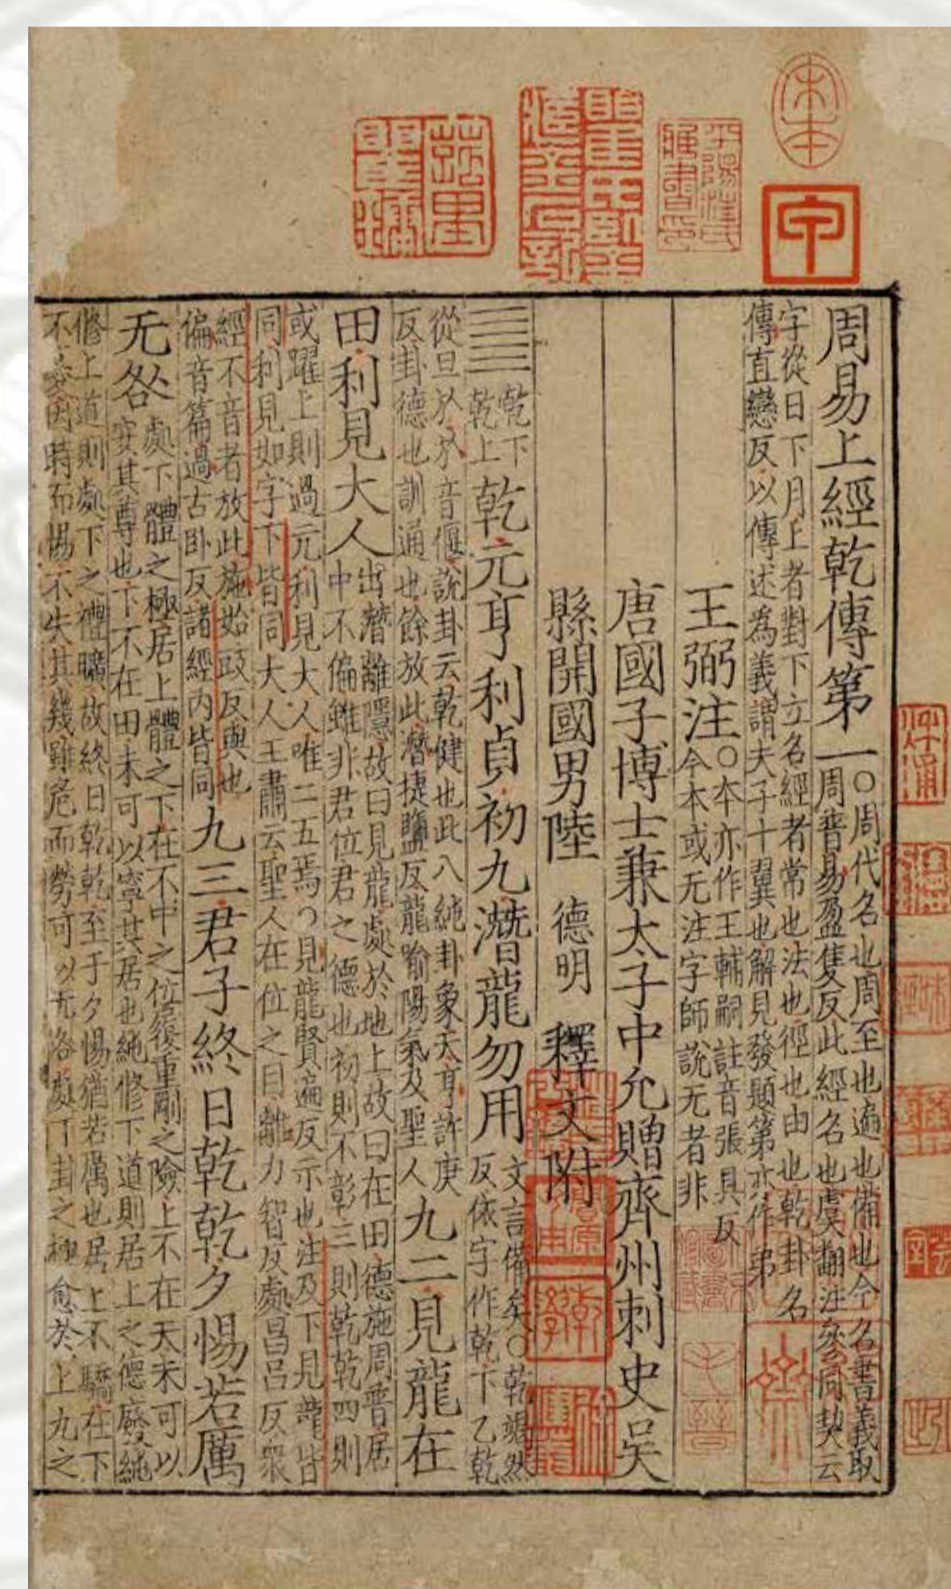 宋本
甲
平陽汪氏藏書印
周易上經乾傳第一
〇周代名也周至也遍也備也今名書義取
周普易盈隻反此經名也虞翻注參同契云
字從日下月上者對下立名經者常也法也徑也由也乾卦名
傳直戀反以傳述為義謂夫子十翼也解見發題第亦作弟
王弼注
〇本亦作王輔嗣註音張具反
今本或无注字師說无者非
唐國子博士兼太子中允贈齊州刺史吳
縣開國男陸 德明 釋文附
䷀
乾下
乾上
乾元亨利貞初九潛龍勿用
文言備矣〇乾竭然
反依字作乾下乙乾
從旦㫃㫃音偃說卦云乾健也此八純卦象天亨許庚
反卦德也訓通也餘放此潛捷鹽反龍喻陽氣及聖人
九二見龍在
田利見大人
出潛離隱故曰見龍處於地上故曰在田德施周普居
中不偏雖非君位君之德也初則不彰三則乾乾四則
或躍上則過亢利見大人唯二五焉〇見龍賢遍反示也注及下見龍皆
同利見如字下皆同大人王肅云聖人在位之目離力智反處昌呂反眾
經不音者放此施始豉反與也
偏音篇過古臥反諸經內皆同
九三君子終日乾乾夕惕若厲
无咎
處下體之極居上體之下在不中之位履重剛之險上不在天未可以
安其尊也下不在田未可以寧其居也純修下道則居上之德廢純
修上道則處下之禮曠故終日乾乾至于夕惕猶若厲也居上不驕在下
不憂因時而惕不失其幾雖危而勞可以无咎處下卦之極愈於上九之